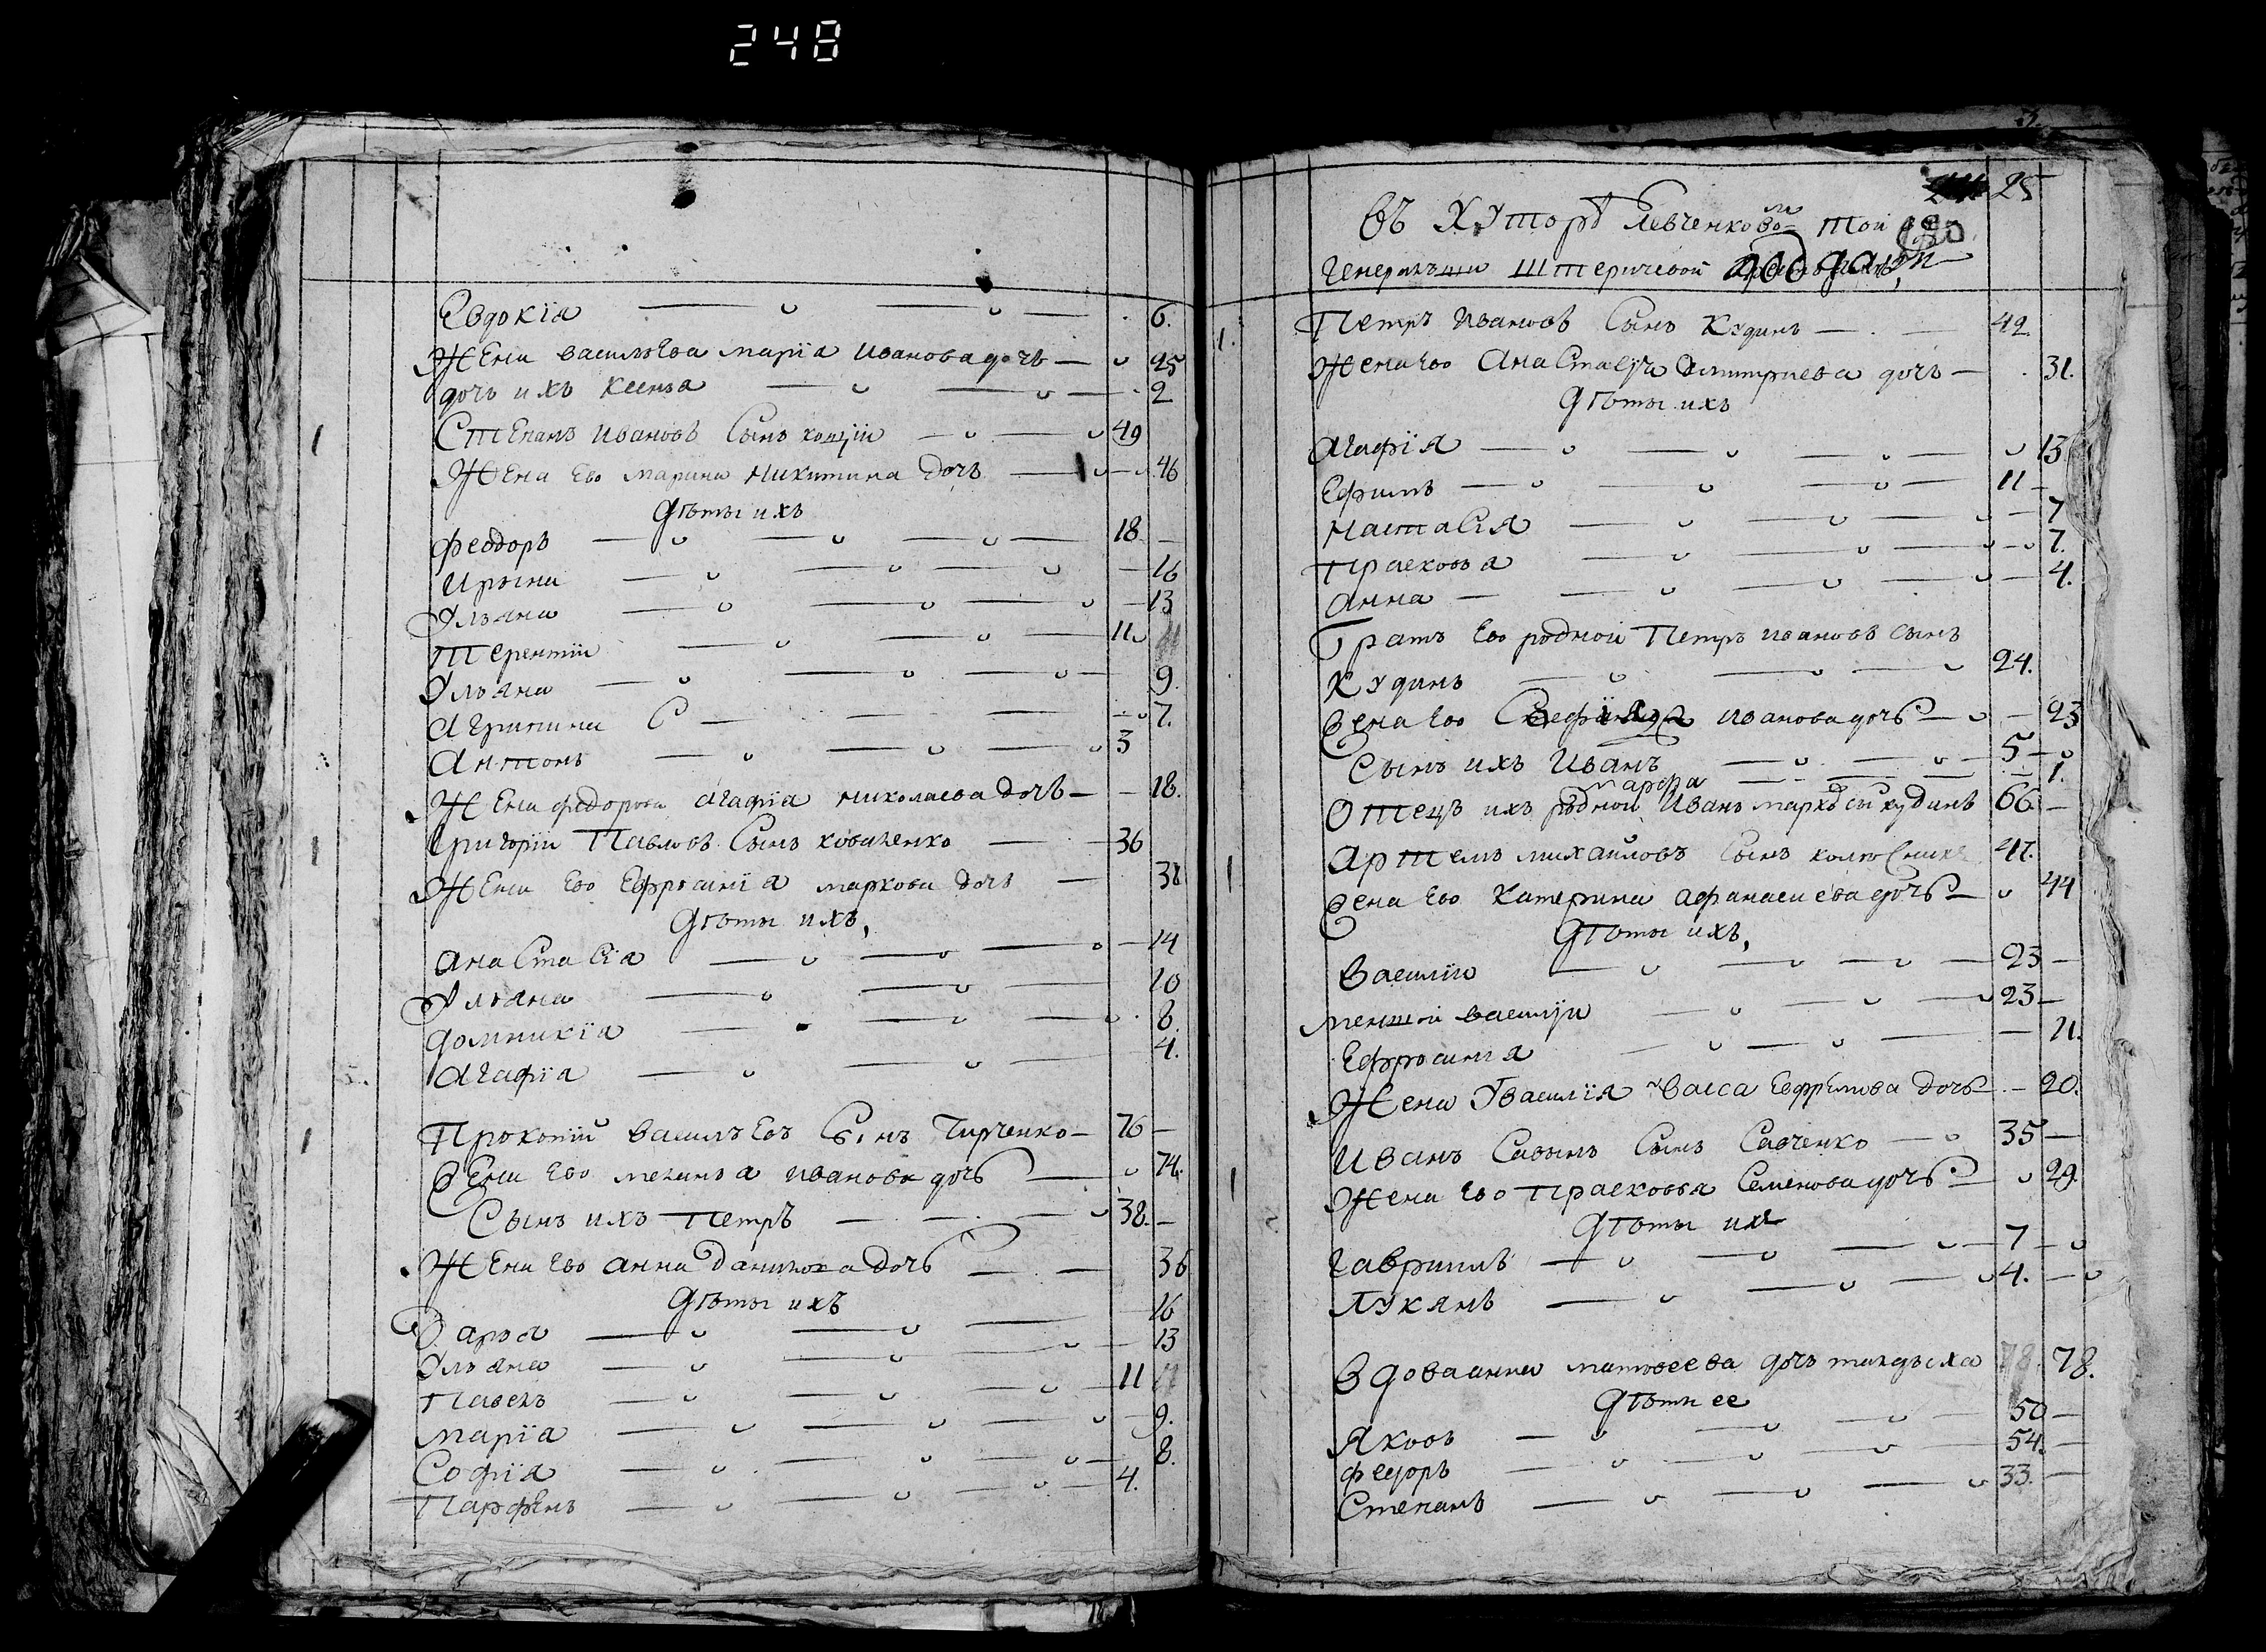 248
Евдокїа 6.
Жена василъева марїа Иванова дочь 25
дочь ихъ Ксенъа 2
1 Степанъ Ивановъ Сынъ 49
Жена Ево марина никитина дочь 46
Дѣты ихъ
феодоръ 18
Ирына 16
Ульяна 13
Терентїи 11
Ульяна 9.
Агрипина 7.
Антонъ 3
Жена федорова агафїа николаева дочь 18.
1 Григорїи Павловъ Сынъ коваленко 36
Жена Ево Ефросинїа маркова дочь 38
Дѣты ихъ,
анастасїа 14
Ульяна 10
домникїа 8.
агафїа 4.
1 Прокопїй василъевъ Сынъ 76
Жена Ево меланъа иванова дочь 74.
Сынъ ихъ Петръ 38.
Жена Ево анна данилова дочь 36
Дѣты ихъ
Дарья 16
Ульяна 13
Павелъ 11
марїа 9.
Софїа 8.
Парфѣнъ 4.
25
въ хуторѣ той
генералши Штеричевой
1. Петръ Ивановъ Сынъ Кудинъ 42.
Жена Ево Анастасїя дмитриева дочь 31.
Дѣты ихъ
Агафїя 13
Ефимъ 11
Настасїя 7
Прасковъа 7.
анна 4.
Братъ Ево родной Петръ ивановъ сынъ
Кудинъ 24.
Жена Ево иванова дочь 23
Сынъ ихъ Иванъ 5
марфа 1.
Отецъ ихъ родной Иванъ марковъ сынъ кудинъ 66
1 Артемъ михаиловъ Сынъ 47.
Жена Ево Катерина афанасиева дочь 44
Дѣты ихъ,
Василїи 23
меншой василїи 23
Ефросинїа 11.
Жена Увасилїя васса Ефремова дочь 20.
1 Иванъ Савынъ Сынъ Савченко 35
Жена Ево Прасковъя Семенова дочь 29.
Дѣты ихъ
Гаврилъ 7
Лукянъ 4.
Вдова анна матвеева дочь 78.
Дѣты ее
Яковъ 50
федоръ 54.
Степанъ 33.